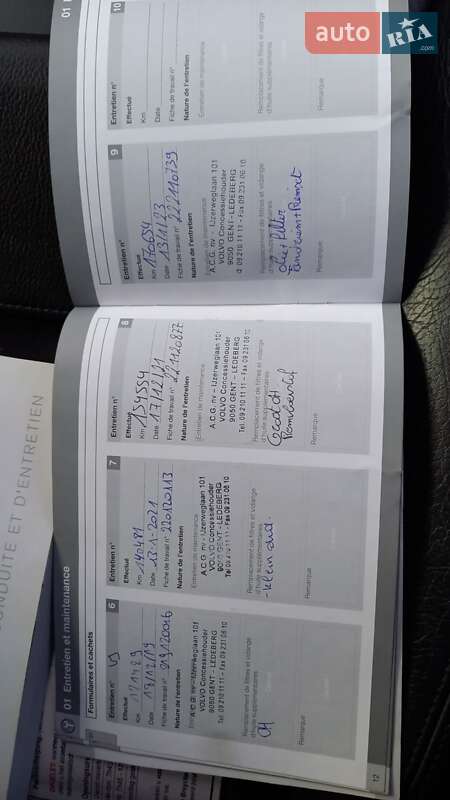 auto RIA.com
CONDUITE ET D'ENTRETIEN
01 Entretien et maintenance
Formulaires et cachets
Entretien n° 6
Effectué
Km 121429
Date 17/12/19
Fiche de travail n°
Nature de l'entretien
A.C.G. nv - IJzerweglaan 101
VOLVO Concessiehouder
9050 GENT - LEDEBERG
Tel. 09 210 11 11 - Fax 09 231 06 10
Remplacement de filtres et vidange
d'huile supplémentaires
Remarque
Entretien n° 7
Effectué
Km 140481
Date 13-1-2021
Fiche de travail n° 220120113
Nature de l'entretien
Entretien de maintenance
A.C.G. nv - IJzerweglaan 101
VOLVO Concessiehouder
9050 GENT - LEDEBERG
Tel 09 210 11 11 - Fax 09 231 06 10
Remplacement de filtres et vidange
d'huile supplémentaires
- klein ond.
Remarque
Entretien n° 8
Effectué
Km 154554
Date 17/12/21
Fiche de travail n° 221120827
Nature de l'entretien
Entretien de maintenance
A.C.G. nv - IJzerweglaan 101
VOLVO Concessiehouder
9050 GENT - LEDEBERG
Tel. 09 210 11 11 - Fax 09 231 06 10
Remplacement de filtres et vidange
d'huile supplémentaires
Remarque
12
01
Entretien n° 9
Effectué
Km 176634
Date 13/1/23
Fiche de travail n° 222110739
Nature de l'entretien
Entretien de maintenance
A.C.G. nv - IJzerweglaan 101
VOLVO Concessiehouder
9050 GENT - LEDEBERG
09 210 11 11 - Fax 09 231 06 10
Remplacement de filtres et vidange
d'huile supplémentaires
Olie + filter
Remarque
Entretien n° 10
Effectué
Km
Date
Fiche de travail n°
Nature de l'entretien
Entretien de maintenance
Remplacement de filtres et vidange
d'huile supplémentaires
Remarque